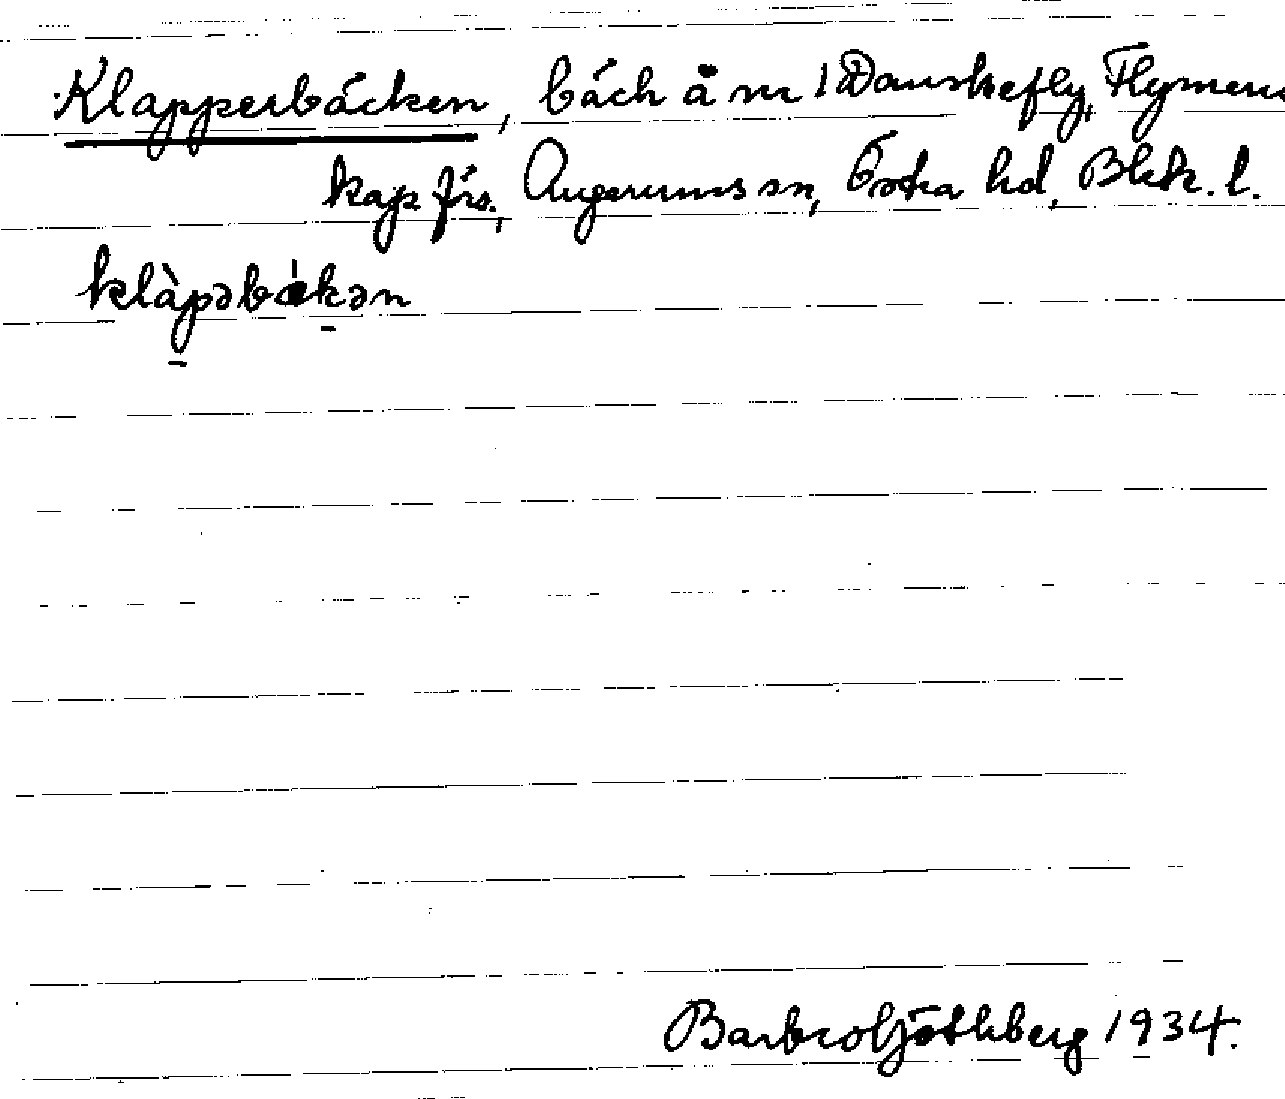 Klapperbäcken, bäck å nr 1 Danskefly, Flymens
kap. frs., Augerums sn, Östra hd, Blek. l.
klàpəbǻkən
Barbro Götkberg 1934.